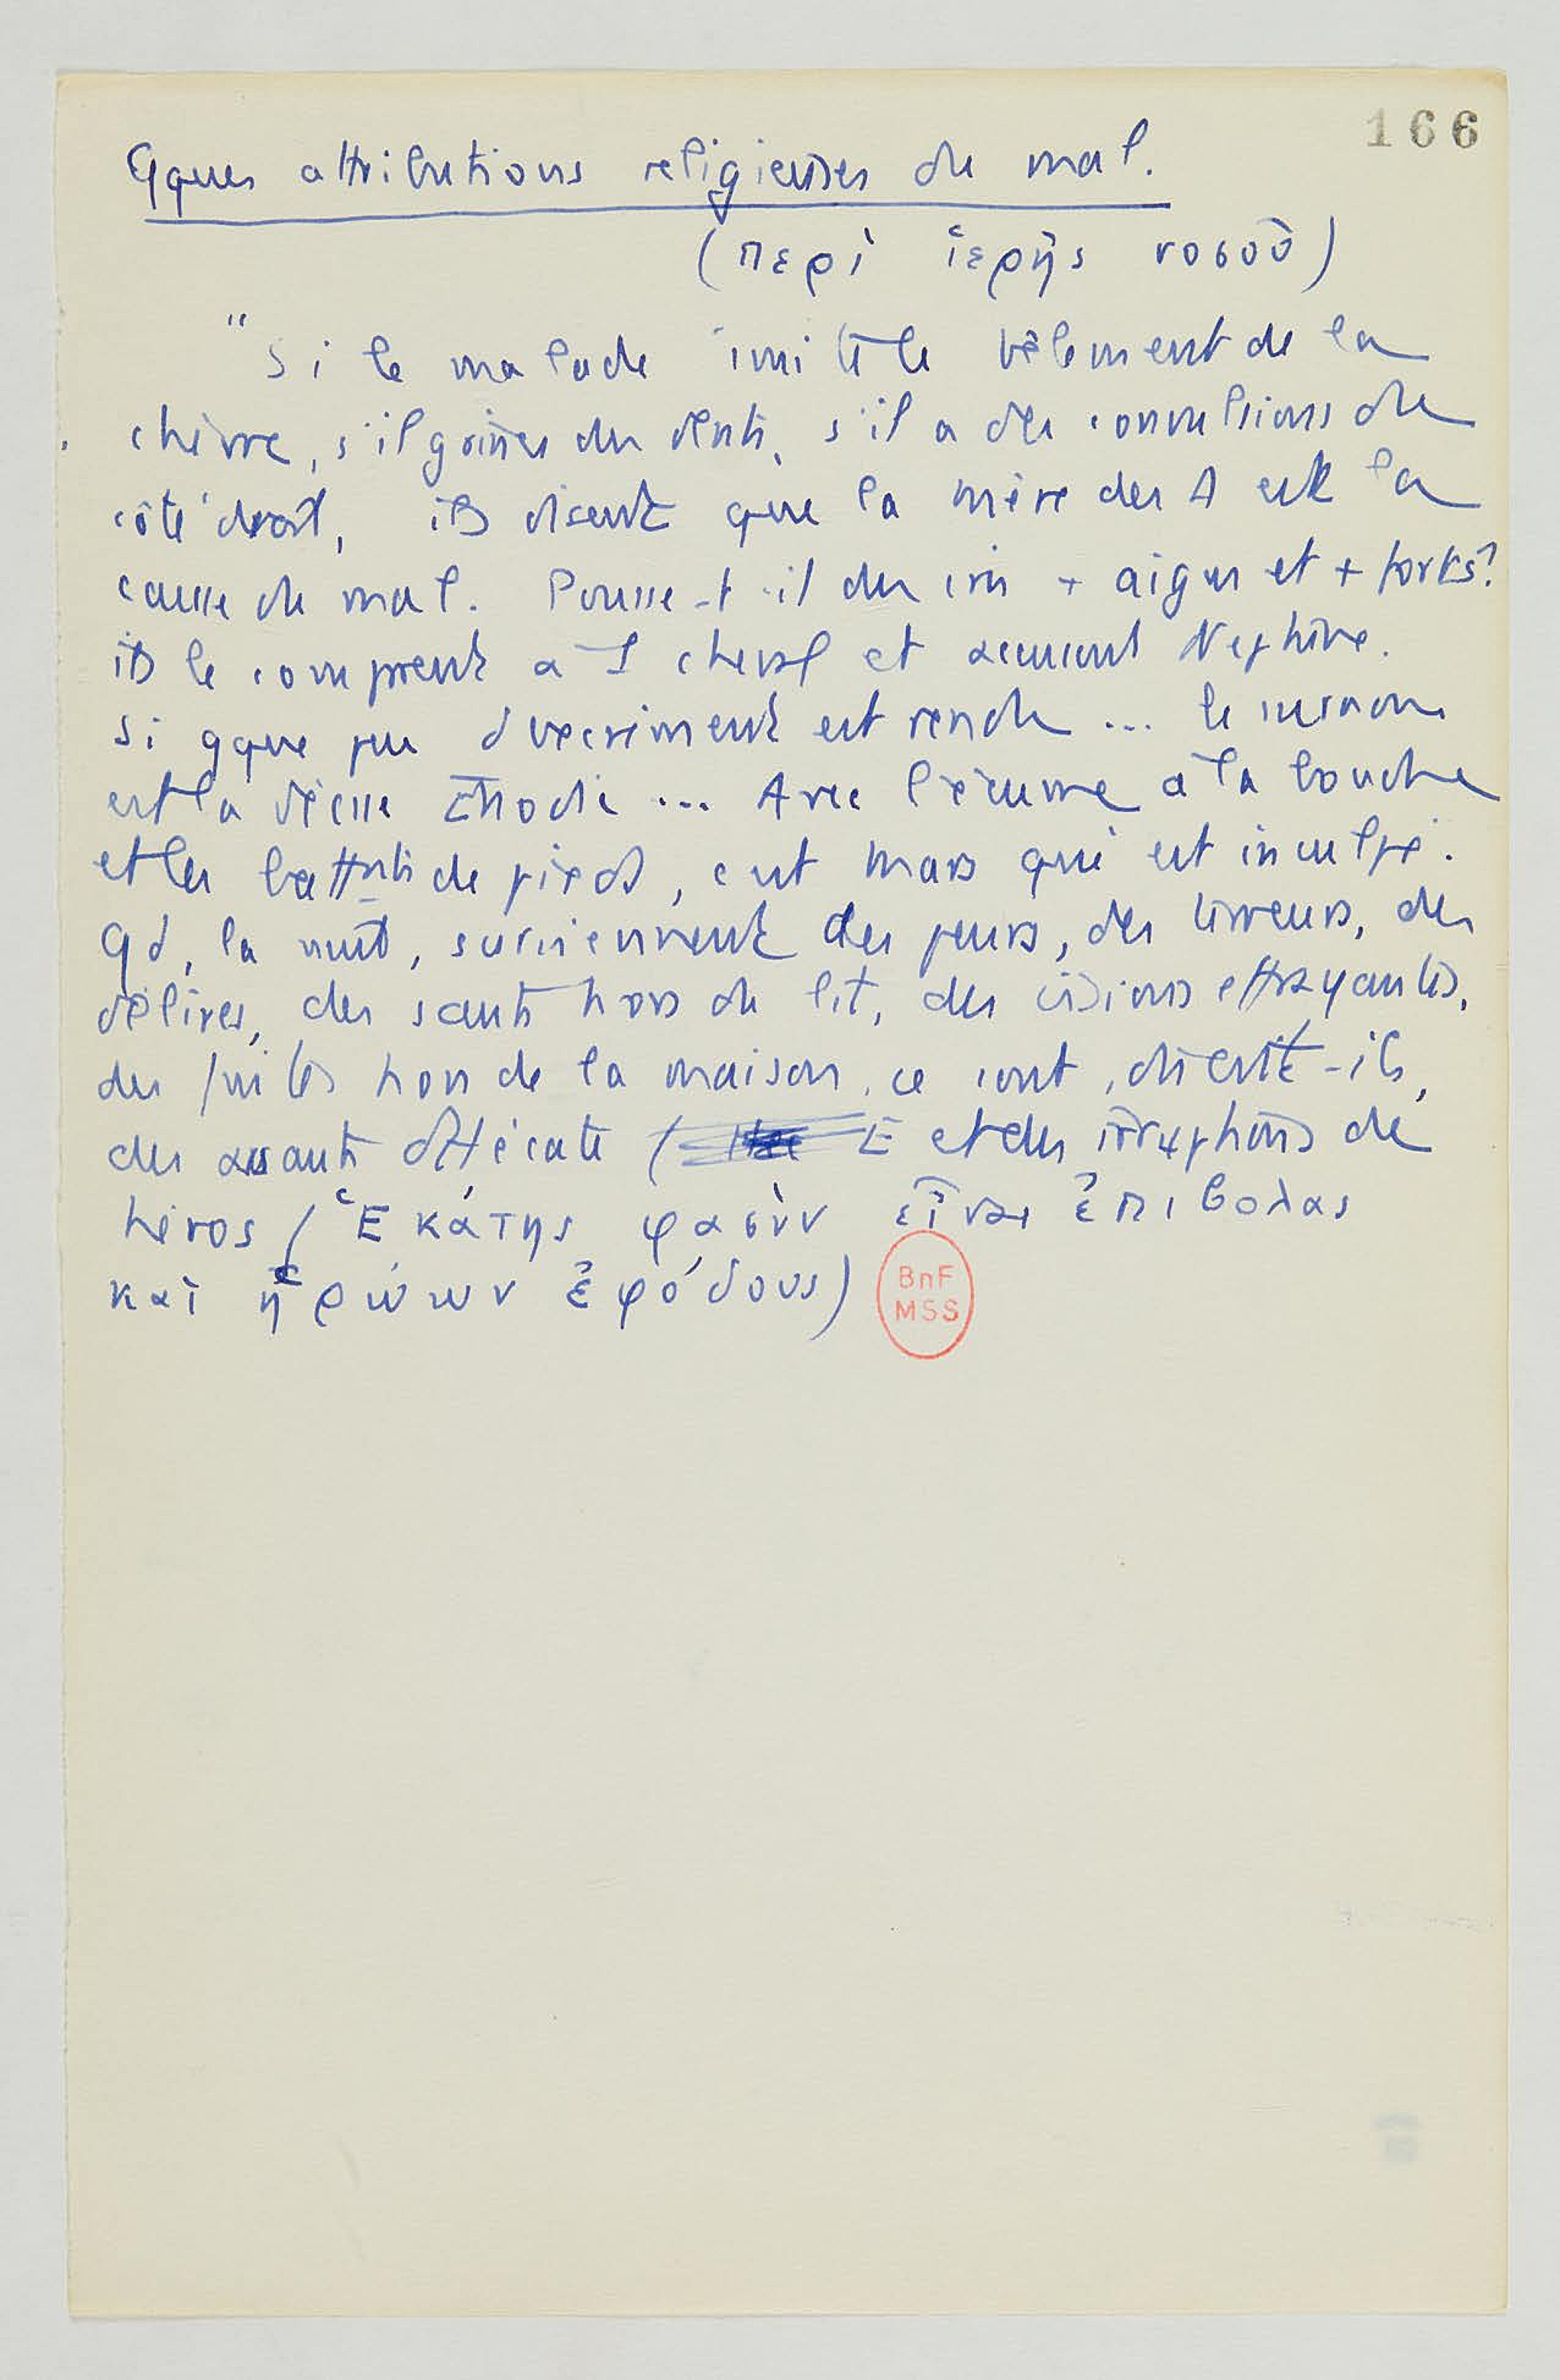 166
Qques attributions religieuses du mal.
(περὶ ἱερῆς νοσοῦ)
"Si le malade imite le bêlement de la
chèvre, s'il grince des dents, s'il a des convulsions du
côté droit, ils disent que la mère des A est la
cause du mal. Pousse-t-il des cris + aigus et + forts?
ils le comparent à 1 cheval et accusent Neptune.
Si qque peu d'excrément est rendu ... le surnom
est la déesse Enodie ... Avec l'écume à la bouche
et les battnts de pieds, c'est Mars qui est inculpé.
Qd, la nuit, surviennent des peurs, des terreurs, des
délires, des sauts hors du lit, des visions effrayantes,
des fuites hors de la maison, ce sont, disent-ils,
des assauts d'Hécate ( E et des irruptions de
héros (Ἑκάτης φασὶν εἶναι ἐπιβολας
καὶ ἡρώων ἐφόδους)
BnF
MSS